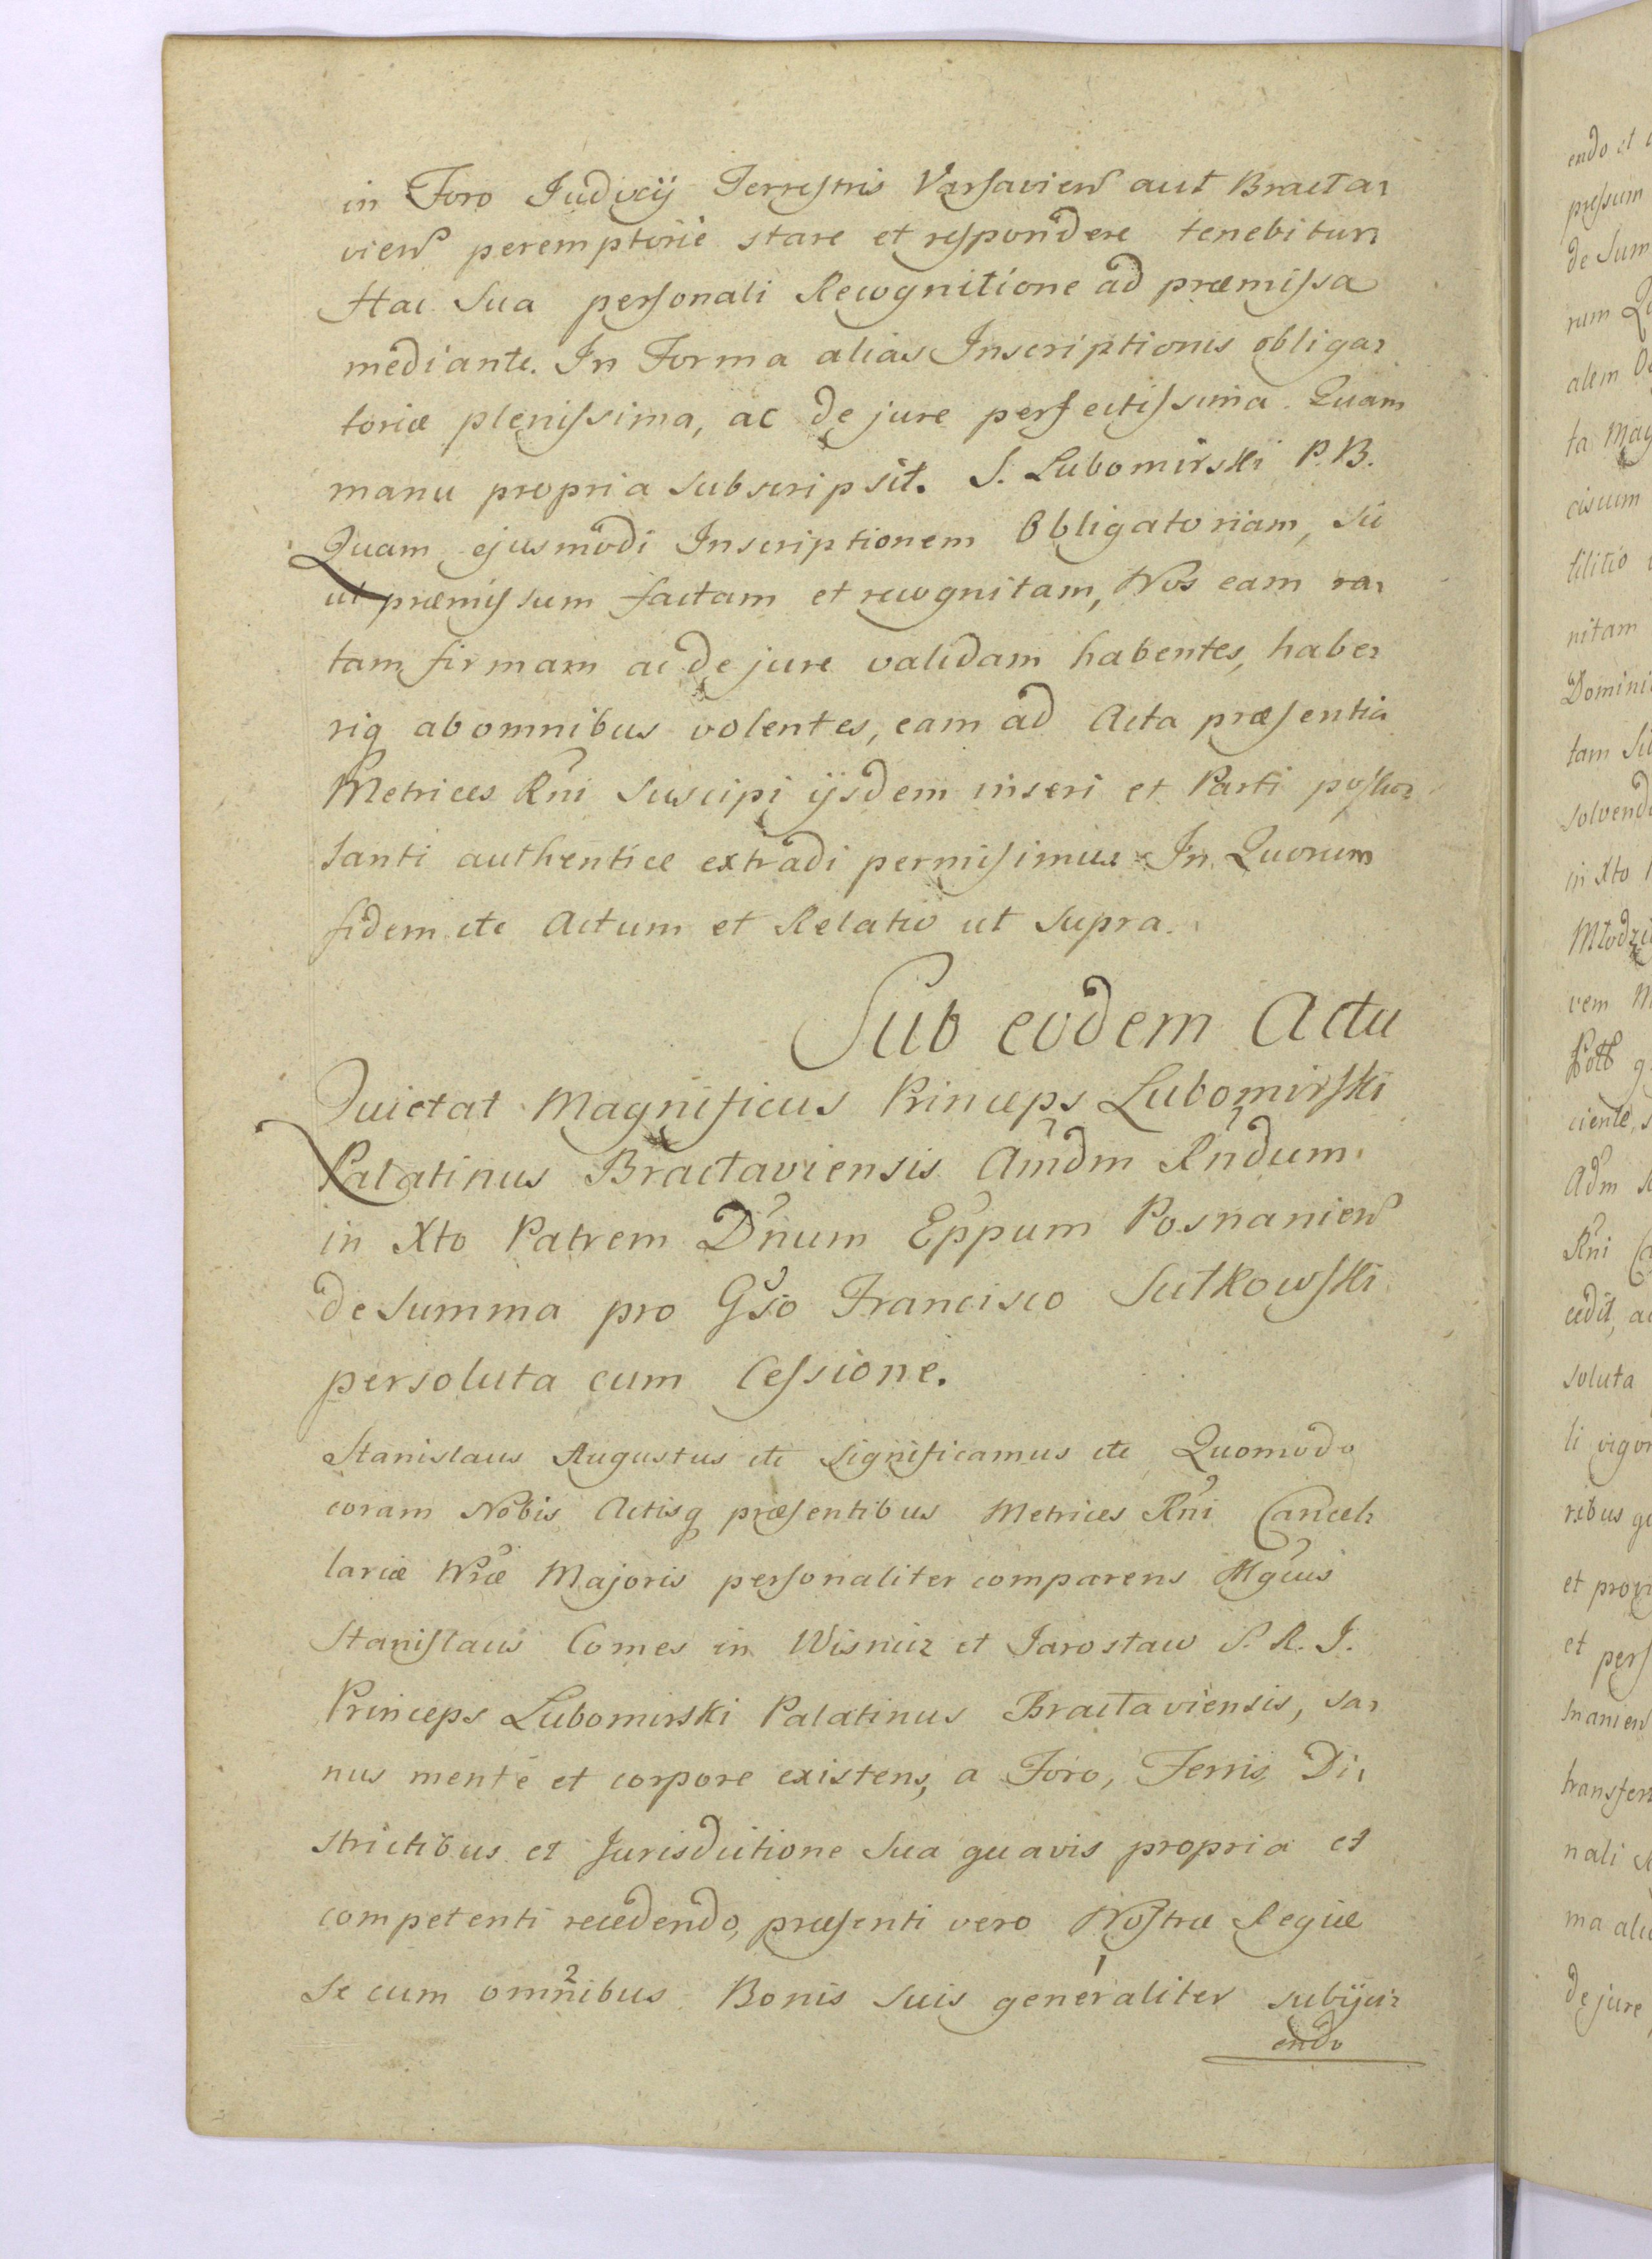 in Foro Judicij Terrestris Varsavien aut Bracta-
vien peremptorie stare et respondere tenebitur,
Hac Sua personali Recognitione ad præmissa
mediante. In Forma alias Inscriptionis obliga-
toriæ plenissima, ac de jure perfectissima. Quam
manu propria subscripsit. S. Lubomirski P.B.
Quam ejusmodi Inscriptionem Obligatoriam, Sic
ut præmissum factam et recognitam, Nos eam ra-
tam firmam ac de jure validam habentes, habe-
riq ab omnibus volentes, eam ad Acta præsentia
Metrices Rni Suscipi ijsdem inseri et Parti postu-
lanti authentice extradi permisimus. In Quorum
fidem etc Actum et Relatio ut Supra.
Sub eodem Actu
Quietat Magnificus Princeps Lubomirski
Palatinus Bractaviensis Amdm Rndum
in Xto Patrem Dnum Eppum Posnanien
de Summa pro Gso Francisco Sutkowski
persoluta cum Cessione.
Stanislaus Augustus etc Significamus etc Quomodo
coram Nobis Actisq præsentibus Metrices Rni Cancel-
lariæ Nræ Majoris personaliter comparens Mgcus
Stanislaus Comes in Wisnicz et Jarostaw S. R. J.
Princeps Lubomirski Palatinus Bractaviensis, sa-
nus mente et corpore existens, a Foro, Terris, Di-
strictibus et Jurisdictione Sua quavis propria et
competenti recedendo, præsenti vero Nostræ Regiæ
Se cum omnibus Bonis Suis generaliter subijci-
endo